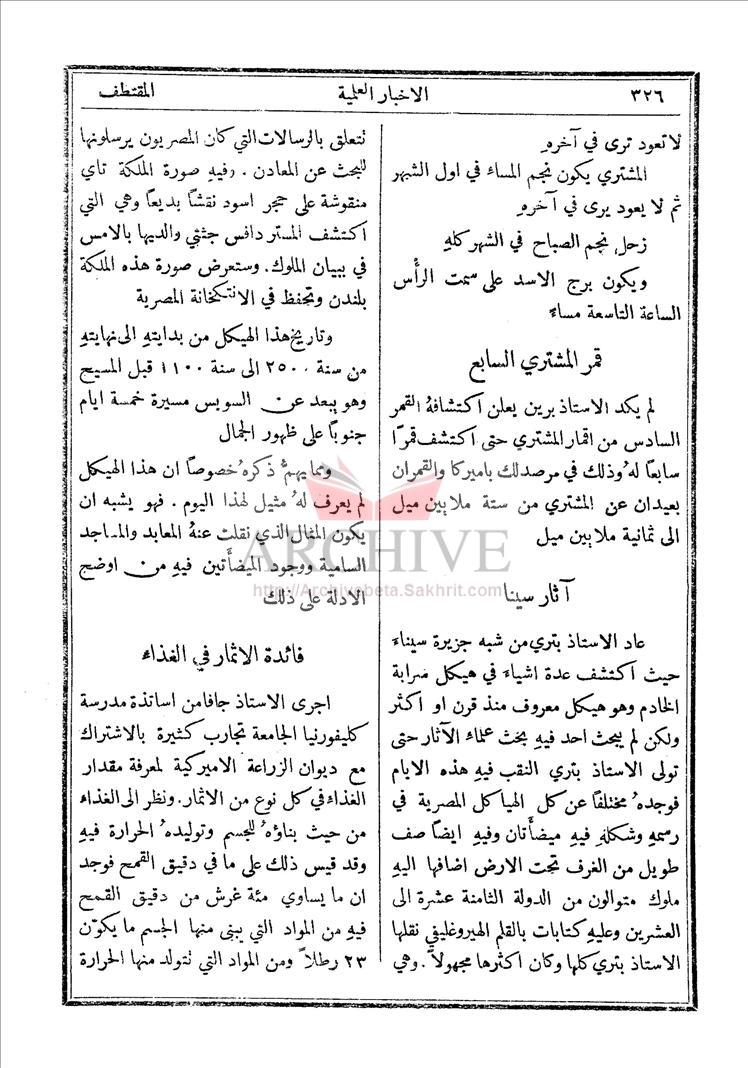 ٣٢٦
الاخبار العلمية
المقتطف
لا تعود ترى في آخرهِ
المشتري يكون نجم المساء في اول الشهر
ثم لا يعود يرى في آخرهِ
زحل نجم الصباح في الشهر كلهِ
ويكون برج الاسد على سمت الرأس
الساعة التاسعة مساءً
قمر المشتري السابع
لم يكد الاستاذ برين يعلن اكتشافهُ القمر
السادس من اقمار المشتري حتى اكتشف قمرًا
سابعًا لهُ وذلك في مرصد لك باميركا والقمران
بعيدان عن المشتري من ستة ملايين ميل
الى ثمانية ملايين ميل
آثار سينا
عاد الاستاذ بتري من شبه جزيرة سيناء
حيث اكتشف عدة اشياء في هيكل ضرابة
الخادم وهو هيكل معروف منذ قرن او اكثر
ولكن لم يبحث احد فيهِ بحث علماء الآثار حتى
تولى الاستاذ بتري النقب فيهِ هذه الايام
فوجدهُ مختلفًا عن كل الهياكل المصرية في
رسمهِ وشكلهِ فيهِ ميضأتان وفيهِ ايضًا صف
طويل من الغرف تحت الارض اضافها اليهِ
ملوك متوالون من الدولة الثامنة عشرة الى
العشرين وعليهِ كتابات بالقلم الهيروغليفي نقلها
الاستاذ بتري كلها وكان اكثرها مجهولاً. وهي
تتعلق بالرسالات التي كان المصريون يرسلونها
للبحث عن المعادن. وفيهِ صورة الملكة تاي
منقوشة على حجر اسود نقشًا بديعًا وهي التي
اكتشف المستر دافس جثتي والديها بالامس
في بيبان الملوك. وستعرض صورة هذه الملكة
بلندن وتحفظ في الانتكخانة المصرية
وتاريخ هذا الهيكل من بدايتهِ الى نهايتهِ
من سنة ٢٥٠٠ الى سنة ١١٠٠ قبل المسيح
وهو يبعد عن السويس مسيرة خمسة ايام
جنوبًا على ظهور الجمال
ومما يهمُّ ذكرهُ خصوصًا ان هذا الهيكل
لم يعرف لهُ مثيل لهذا اليوم. فهو يشبه ان
يكون المثال الذي نقلت عنهُ المعابد والمساجد
السامية ووجود الميضأتين فيهِ من اوضح
الادلة على ذلك
فائدة الاثمار في الغذاء
اجرى الاستاذ جافا من اساتذة مدرسة
كليفورنيا الجامعة تجارب كثيرة بالاشتراك
مع ديوان الزراعة الاميركية لمعرفة مقدار
الغذاء في كل نوع من الاثمار. ونظر الى الغذاء
من حيث بناؤهُ للجسم وتوليدهُ الحرارة فيهِ
وقد قيس ذلك على ما في دقيق القمح فوجد
ان ما يساوي مئة غرش من دقيق القمح
فيهِ من المواد التي يبنى منها الجسم ما يكوّن
٢٣ رطلاً ومن المواد التي تتولد منها الحرارة
ARCHIVE
http://Archivebeta.Sakhrit.com